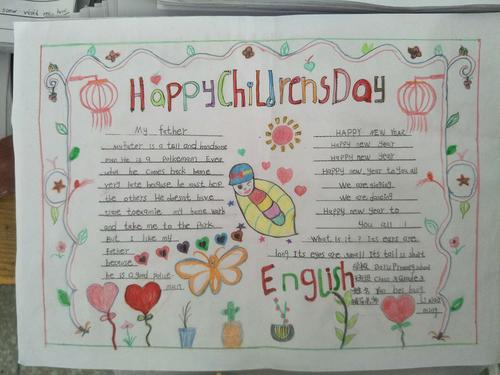 Happy Childrens Day
My father
my fater is a tall and handsome
man He is a Policeman Ever
he comes back home
very late because he must help
the others He doesn't have
time my home work
and take me to the Park
But I like my
father
because
he is a good police
man
HAPPY NEW YEAR
Happy new year
Happy new year
Happy new year to you all
We are singing
We are dancing
Happy new year to
you all !
What is it ? Its ears are
long Its eyes are small Its tail is short
English
Primary school
Class 3 Grade 3